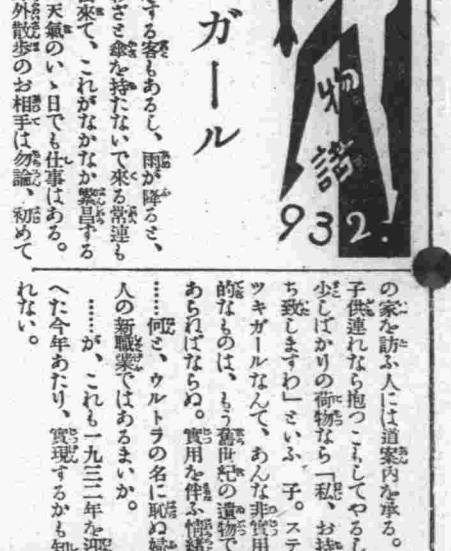 物語
932.
ガール
する客もあるし、雨が降ると、
ざと傘を持たないで來る常連も
來て、これがなかなか繁昌する
天氣のいゝ日でも仕事はある。
外散歩のお相手は勿論、初めて
の家を訪ふ人には道案内を承る。
子供連れなら抱つこもしてやるし
少しばかりの荷物なら「私、お持
ち致しますわ」といふ 子。ステ
ツキガールなんて、あんな非實用
的なものは、もう舊世紀の遺物で
あらねばならぬ。實用を伴ふ情緒
……何と、ウルトラの名に恥ぬ婦
人の新職業ではあるまいか。
……が、これも一九三二年を迎
へた今年あたり、實現するかも知
れない。